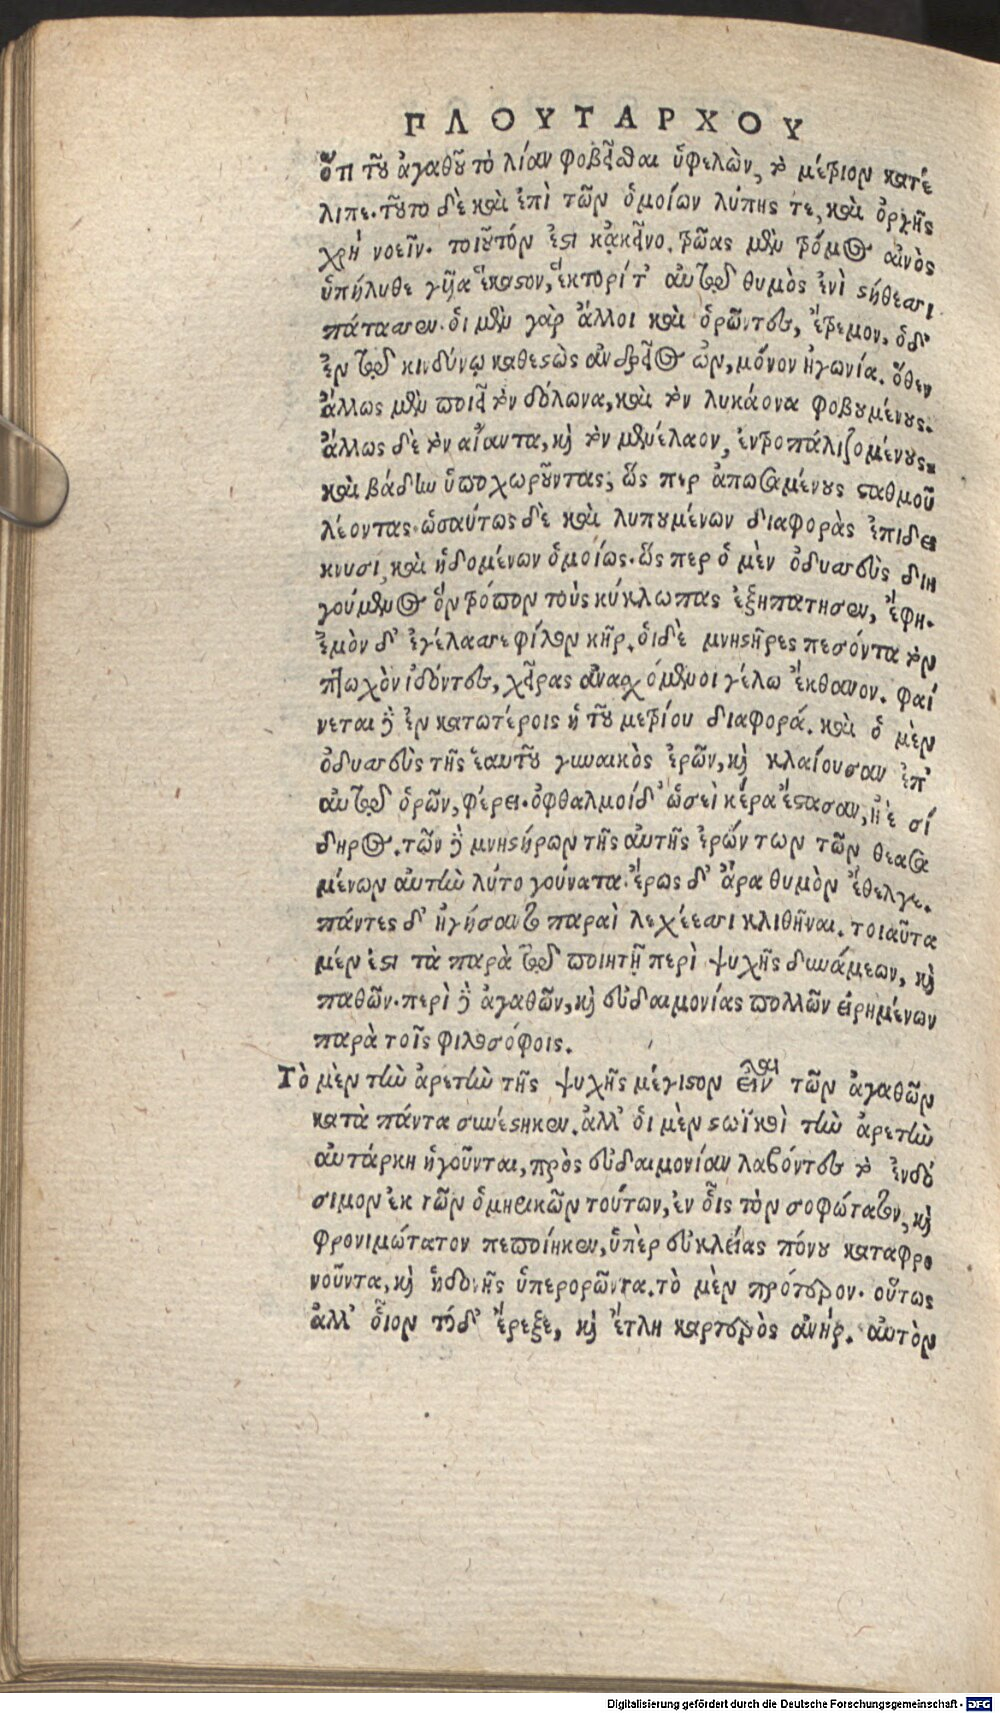 ΠΛΟΥΤΑΡΧΟΥ
ὅτι τοῦ ἀγαθοῦ τὸ λίαν φοβεῖσθαι ὑφελὼν, τὸ μέτριον κατέ
λιπε. τοῦτο δὲ καὶ ἐπὶ τῶν ὁμοίων λύπης τε, καὶ ὀργῆς
χρὴ νοεῖν. τοιοῦτόν ἐστι κᾀκεῖνο. τρῶας μὲν τρόμος αἰνὸς
ὑπήλυθε γυῖα ἕκαστον, ἕκτορί τ' αὐτῷ θυμὸς ἐνὶ στήθεσσι
πάτασσεν. ὁι μὲν γὰρ ἄλλοι καὶ ὁρῶντες, ἔτρεμον. ὁδ'
ἐν τῷ κινδύνῳ καθεστὼς ἀνδρεῖος ὢν, μόνον ἠγωνία. ὅθεν
ἄλλως μὲν ποιεῖ τὸν δόλωνα, καὶ τὸν λυκάονα φοβουμένους.
ἄλλως δὲ τὸν αἴαντα, καὶ τὸν μενέλαον, ἐντροπάλιζομένους
καὶ βάδην ὑποχωροῦντας, ὥς περ ἀπωσαμένους σταθμοῦ
λέοντας. ὡσαύτως δὲ καὶ λυπουμένων διαφορὰς ἐπιδεί
κνυσι, καὶ ἡδομένων ὁμοίως. ὥς περ ὁ μὲν ὀδυσσεὺς διη
γούμενος ὃν τρόπον τοὺς κύκλωπας ἐξηπατησεν, ἔφη.
ἐμὸν δ' ἐγέλασσε φίλον κῆρ. ὁιδὲ μνηστῆρες πεσόντα τὸν
πτωχὸν ἰδόντες, χεῖρας ἀνασχόμενοι γέλω ἔκθανον. φαί
νεται δὲ ἐν κατωτέροις ἡ τοῦ μετρίου διαφορά. καὶ ὁ μὲν
ὀδυσσεὺς τῆς ἑαυτοῦ γυναικὸς ἐρῶν, καὶ κλαίουσαν ἐπ'
αὐτῷ ὁρῶν, φέρει. ὀφθαλμοίδ' ὡσεὶ κέρα ἕστασαν, ἠὲ σί
δηρος. τῶν δὲ μνηστήρων τῆς αὐτῆς ἐρώντων τῶν θεασα
μένων αὐτὴν λύτο γούνατα. ἔρως δ' ἄρα θυμὸν ἔθελγε.
πάντες δ' ἠγήσαντο παραὶ λεχέεσσι κλιθῆναι. τοιαῦτα
μέν ἐστι τὰ παρὰ τῷ ποιητῇ περὶ ψυχῆς δυνάμεων, καὶ
παθῶν. περὶ δὲ ἀγαθῶν, καὶ εὐδαιμονίας πολλῶν εἰρημένων
παρὰ τοῖς φιλοσόφοις.
Τὸ μὲν τὴν ἀρετὴν τῆς ψυχῆς μέγιστον εἶναι τῶν ἀγαθῶν
κατὰ πάντα συνέστηκεν. ἀλλ' ὁι μὲν στωϊκοὶ τὴν ἀρετὴν
αὐτάρκη ἡγοῦνται, πρὸς εὐδαιμονίαν λαβόντες τὸ ἐνδό
σιμον ἐκ τῶν ὁμηρικῶν τούτων, ἐν οἷς τὸν σοφώτατον, καὶ
φρονιμώτατον πεποίηκεν, ὑπὲρ εὐκλείας πόνου καταφρο
νοῦντα, καὶ ἡδονῆς ὑπερορῶντα. τὸ μὲν πρότερον. οὕτως
ἀλλ' οἷον τόδ' ἔρεξε, καὶ ἔτλη καρτερὸς ἀνήρ. αὐτὸν
Digitalisierung gefördert durch die Deutsche Forschungsgemeinschaft - DFG